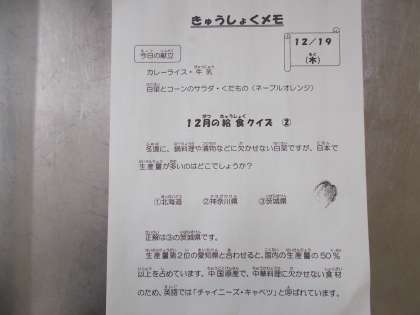 きゅうしょくメモ
12/19
(木)
今日の献立
カレーライス・牛乳
白菜とコーンのサラダ・くだもの(ネーブルオレンジ)
12月の給食クイズ ②
鍋料理や漬物などに欠かせない白菜ですが、日本で
生産量が多いのはどこでしょうか?
①北海道 ②神奈川県 ③茨城県
正解は③の茨城県です。
生産量第2位の愛知県と合わせると、国内の生産量の50%
以上を占めています。中国原産で、中華料理に欠かせない食材
のため、英語では「チャイニーズ・キャベツ」と呼ばれています。